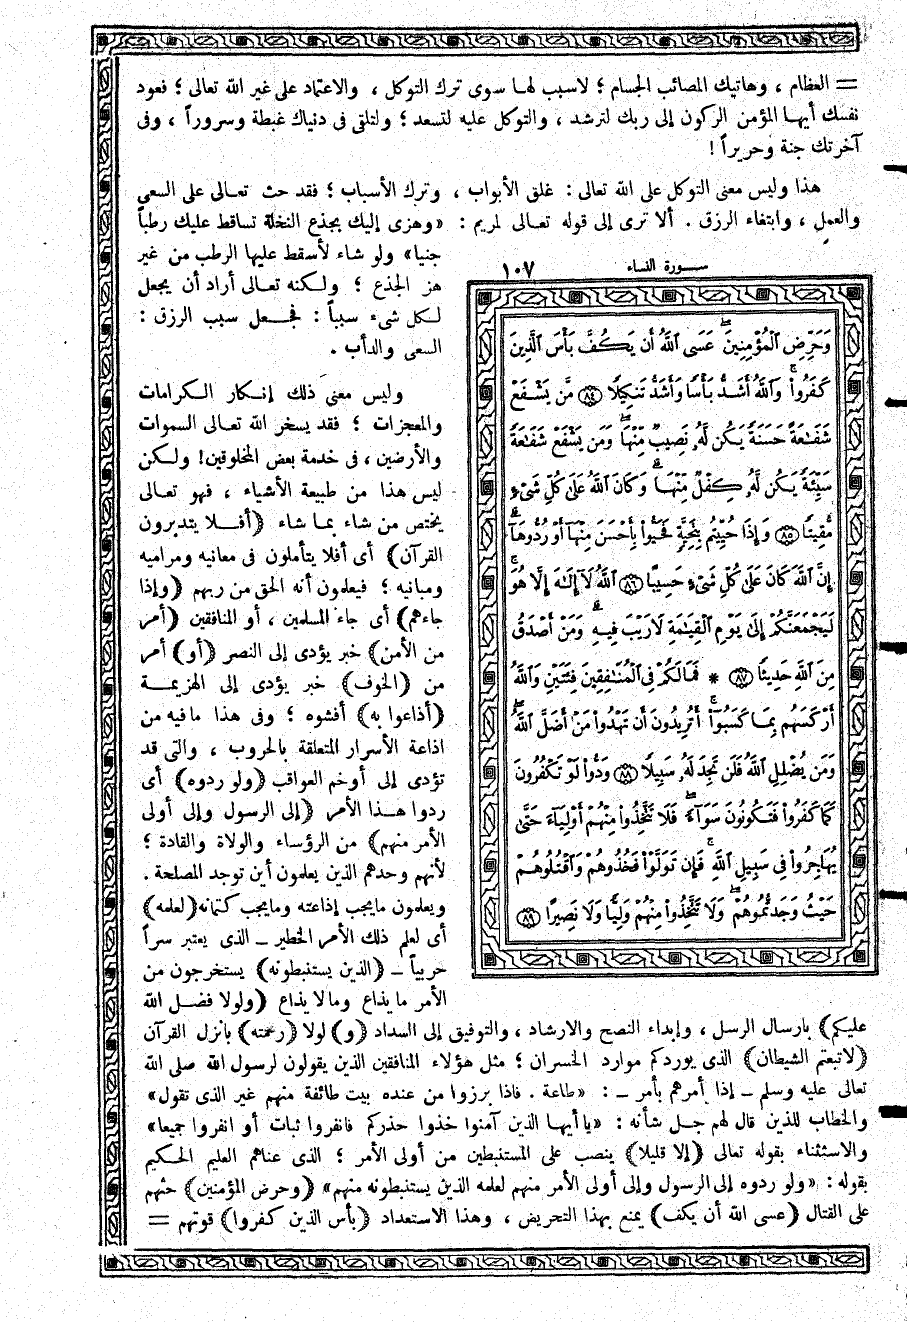 = العظام ، وهاتيك المصائب الجسام ؛ لاسبب لها سوى ترك التوكل ، والاعتماد على غير الله تعالى ؛ فعود
نفسك أيها المؤمن الركون إلى ربك لترشد ، والتوكل عليه لتسعد ؛ ولتلقى فى دنياك غبطة وسروراً ، وفى
آخرتك جنة وحريراً !
هذا وليس معنى التوكل على الله تعالى : غلق الأبواب ، وترك الأسباب ؛ فقد حث تعالى على السعى
والعمل ، وابتغاء الرزق . ألا ترى إلى قوله تعالى لمريم : «وهزى إليك بجذع النخلة تساقط عليك رطباً
جنيا» ولو شاء لأسقط عليها الرطب من غير
هز الجذع ؛ ولكنه تعالى أراد أن يجعل
لكل شىء سبباً : فجعل سبب الرزق :
السعى والدأب .
وليس معنى ذلك إنكار الكرامات
والمعجزات ؛ فقد يسخر الله تعالى السموات
والأرضين ، فى خدمة بعض المخلوقين! ولكن
ليس هذا من طبيعة الأشياء ، فهو تعالى
يختص من شاء بما شاء (أفلا يتدبرون
القرآن) أى أفلا يتأملون فى معانيه ومراميه
ومبانيه ؛ فيعلمون أنه الحق من ربهم (وإذا
جاءهم) أى جاء المسلمين ، أو المنافقين (أمر
من الأمن) خبر يؤدى إلى النصر (أو) أمر
من (الخوف) خبر يؤدى إلى الهزيمة
(أذاعوا به) أفشوه ؛ وفى هذا مافيه من
اذاعة الأسرار المتعلقة بالحروب ، والتى قد
تؤدى إلى أوخم العواقب (ولو ردوه) أى
ردوا هذا الأمر (إلى الرسول وإلى أولى
الأمر منهم) من الرؤساء والولاة والقادة ؛
لأنهم وحدهم الذين يعلمون أين توجد المصلحة .
ويعلمون مايجب إذاعته ومايجب كتمانه (لعلمه)
أى لعلم ذلك الأمر الخطير ـ الذى يعتبر سراً
حربياً ـ (الذين يستنبطونه) يستخرجون من
الأمر ما يذاع وما لا يذاع (ولولا فضل الله
سورة النساء ١٠٧
وَحَرِّضِ ٱلْمُؤْمِنِينَۖ عَسَى ٱللَّهُ أَن يَكُفَّ بَأْسَ ٱلَّذِينَ
كَفَرُوا۟ۚ وَٱللَّهُ أَشَدُّ بَأْسًا وَأَشَدُّ تَنكِيلًا ٨٤ مَّن يَشْفَعْ
شَفَٰعَةً حَسَنَةً يَكُن لَّهُۥ نَصِيبٌ مِّنْهَاۖ وَمَن يَشْفَعْ شَفَٰعَةً
سَيِّئَةً يَكُن لَّهُۥ كِفْلٌ مِّنْهَاۗ وَكَانَ ٱللَّهُ عَلَىٰ كُلِّ شَىْءٍ
مُّقِيتًا ٨٥ وَإِذَا حُيِّيتُم بِتَحِيَّةٍ فَحَيُّوا۟ بِأَحْسَنَ مِنْهَآ أَوْ رُدُّوهَآۗ
إِنَّ ٱللَّهَ كَانَ عَلَىٰ كُلِّ شَىْءٍ حَسِيبًا ٨٦ ٱللَّهُ لَآ إِلَٰهَ إِلَّا هُوَۚ
لَيَجْمَعَنَّكُمْ إِلَىٰ يَوْمِ ٱلْقِيَٰمَةِ لَا رَيْبَ فِيهِۗ وَمَنْ أَصْدَقُ
مِنَ ٱللَّهِ حَدِيثًا ٨٧ * فَمَا لَكُمْ فِى ٱلْمُنَٰفِقِينَ فِئَتَيْنِ وَٱللَّهُ
أَرْكَسَهُم بِمَا كَسَبُوٓا۟ۚ أَتُرِيدُونَ أَن تَهْدُوا۟ مَنْ أَضَلَّ ٱللَّهُۖ
وَمَن يُضْلِلِ ٱللَّهُ فَلَن تَجِدَ لَهُۥ سَبِيلًا ٨٨ وَدُّوا۟ لَوْ تَكْفُرُونَ
كَمَا كَفَرُوا۟ فَتَكُونُونَ سَوَآءًۖ فَلَا تَتَّخِذُوا۟ مِنْهُمْ أَوْلِيَآءَ حَتَّىٰ
يُهَاجِرُوا۟ فِى سَبِيلِ ٱللَّهِۚ فَإِن تَوَلَّوْا۟ فَخُذُوهُمْ وَٱقْتُلُوهُمْ
حَيْثُ وَجَدتُّمُوهُمْۖ وَلَا تَتَّخِذُوا۟ مِنْهُمْ وَلِيًّا وَلَا نَصِيرًا ٨٩
عليكم) بارسال الرسل ، وإبداء النصح والارشاد ، والتوفيق إلى السداد (و) لولا (رحمته) بانزل القرآن
(لاتبعتم الشيطان) الذى يوردكم موارد الخسران ؛ مثل هؤلاء المنافقين الذين يقولون لرسول الله صلى الله
تعالى عليه وسلم ـ إذا أمرهم بأمر ـ : «طاعة . فاذا برزوا من عنده بيت طائفة منهم غير الذى تقول»
والخطاب للذين قال لهم جل شأنه : «يا أيها الذين آمنوا خذوا حذركم فانفروا ثبات أو انفروا جميعا»
والاستثناء بقوله تعالى (إلا قليلا) ينصب على المستنبطين من أولى الأمر ؛ الذى عناهم العليم الحكيم
بقوله : «ولو ردوه إلى الرسول وإلى أولى الأمر منهم لعلمه الذين يستنبطونه منهم» (وحرض المؤمنين) حثهم
على القتال (عسى الله أن يكف) يمنع بهذا التحريض ، وهذا الاستعداد (بأس الذين كفروا) قوتهم =